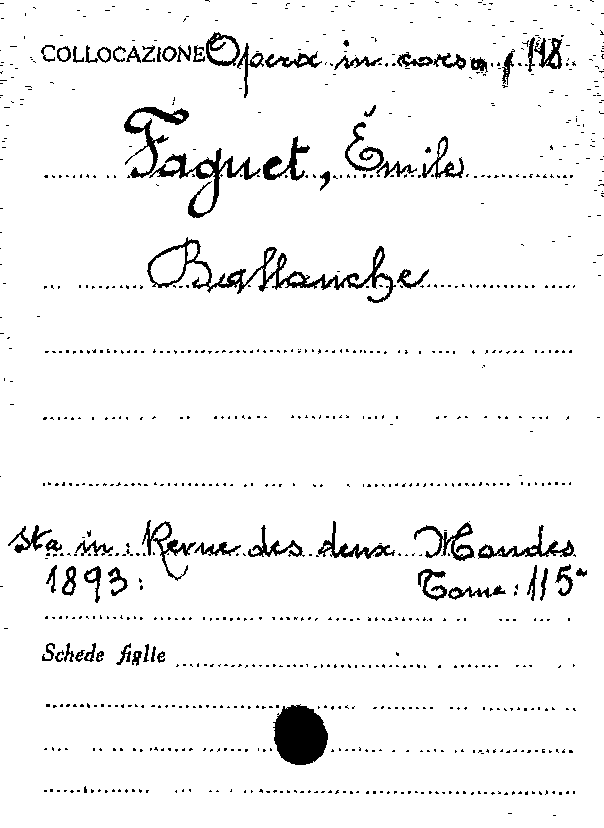 COLLOCAZIONE Opera in corso, 118
Faguet, Émile
Ballanche
Sta in: Revue des deux Mondes
1893: Tome: 115°
Schede figlie